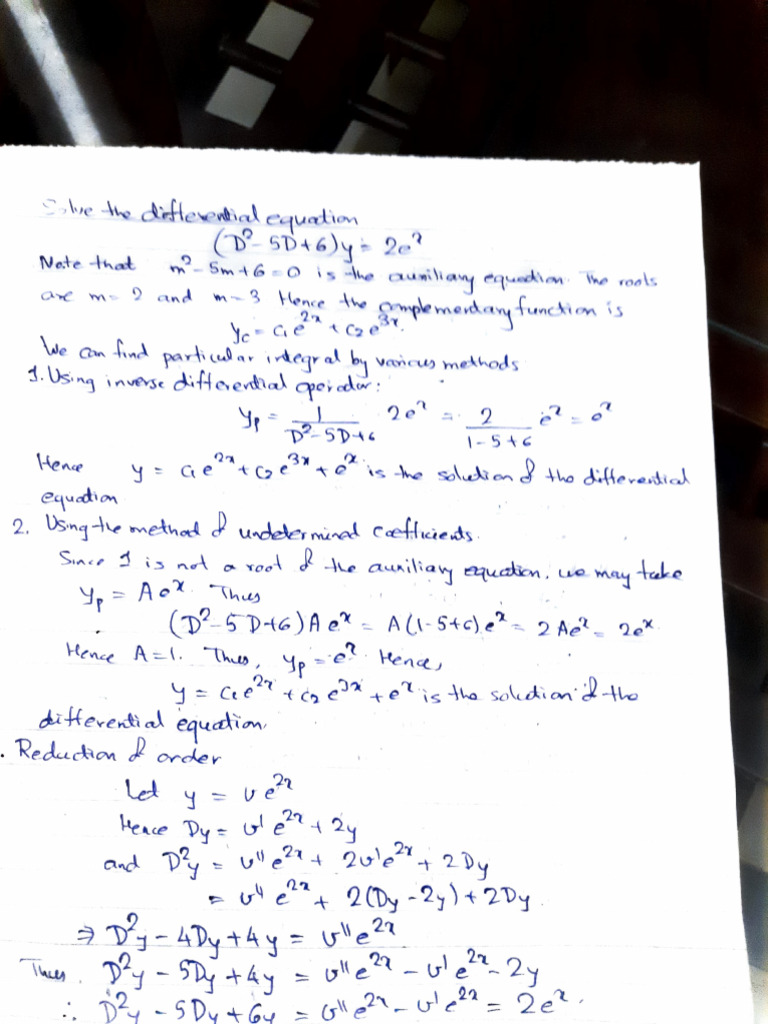 Solve the differential equation
(D² - 5D + 6)y = 2eˣ
Note that m² - 5m + 6 = 0 is the auxiliary equation. The roots
are m = 2 and m = 3 Hence the complementary function is
y_c = c₁e²ˣ + c₂e³ˣ.
We can find particular integral by various methods
1. Using inverse differential operator:
y_p = 1/(D² - 5D + 6) 2eˣ = 2/(1 - 5 + 6) eˣ = eˣ
Hence y = c₁e²ˣ + c₂e³ˣ + eˣ is the solution of the differential
equation
2. Using the method of undetermined coefficients.
Since 1 is not a root of the auxiliary equation, we may take
y_p = Aeˣ. Thus
(D² - 5D + 6)Aeˣ = A(1 - 5 + 6)eˣ = 2Aeˣ = 2eˣ
Hence A = 1. Thus, y_p = eˣ. Hence,
y = c₁e²ˣ + c₂e³ˣ + eˣ is the solution of the
differential equation.
. Reduction of order
Let y = ve²ˣ
Hence Dy = v'e²ˣ + 2y
and D²y = v''e²ˣ + 2v'e²ˣ + 2Dy
= v''e²ˣ + 2(Dy - 2y) + 2Dy.
⇒ D²y - 4Dy + 4y = v''e²ˣ
Thus. D²y - 5Dy + 4y = v''e²ˣ - v'e²ˣ - 2y
∴ D²y - 5Dy + 6y = v''e²ˣ - v'e²ˣ = 2eˣ.